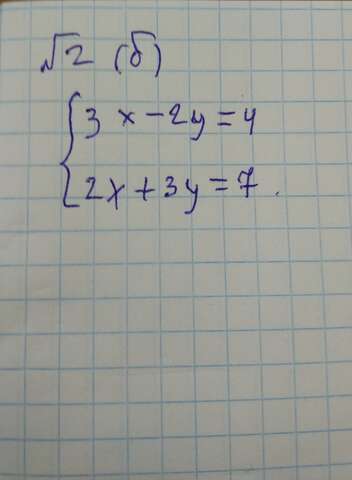 √2 (б)
{3x-2y=4
2x+3y=7.